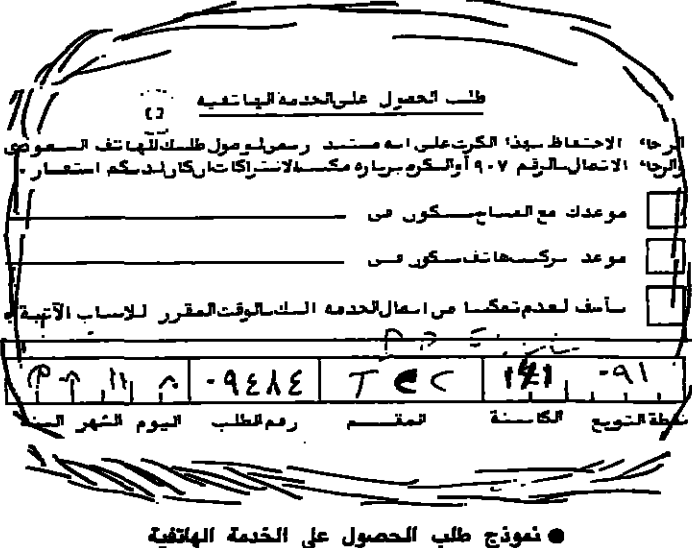 طلب الحصول على الخدمة الهاتفية
الرجاء الاحتفاظ بهذا الكرت على انه مستند رسمي لوصول طلبك للهاتف السعودي
والرجاء الاتصال بالرقم ٩٠٧ أو التكرم بزيارة مكتب الاشتراكات ان كان لديكم استفسار .
موعدك مع المساح سيكون في
موعد تركيب هاتفك سيكون في
نأسف لعدم تمكننا من ايصال الخدمة اليك بالوقت المقرر للاسباب الآتية
٠٩١ ٠٩٤٨٤ ١١ ٨
نقطة التوزيع الكابينة المقسم رقم الطلب اليوم الشهر السنة
● نموذج طلب الحصول على الخدمة الهاتفية